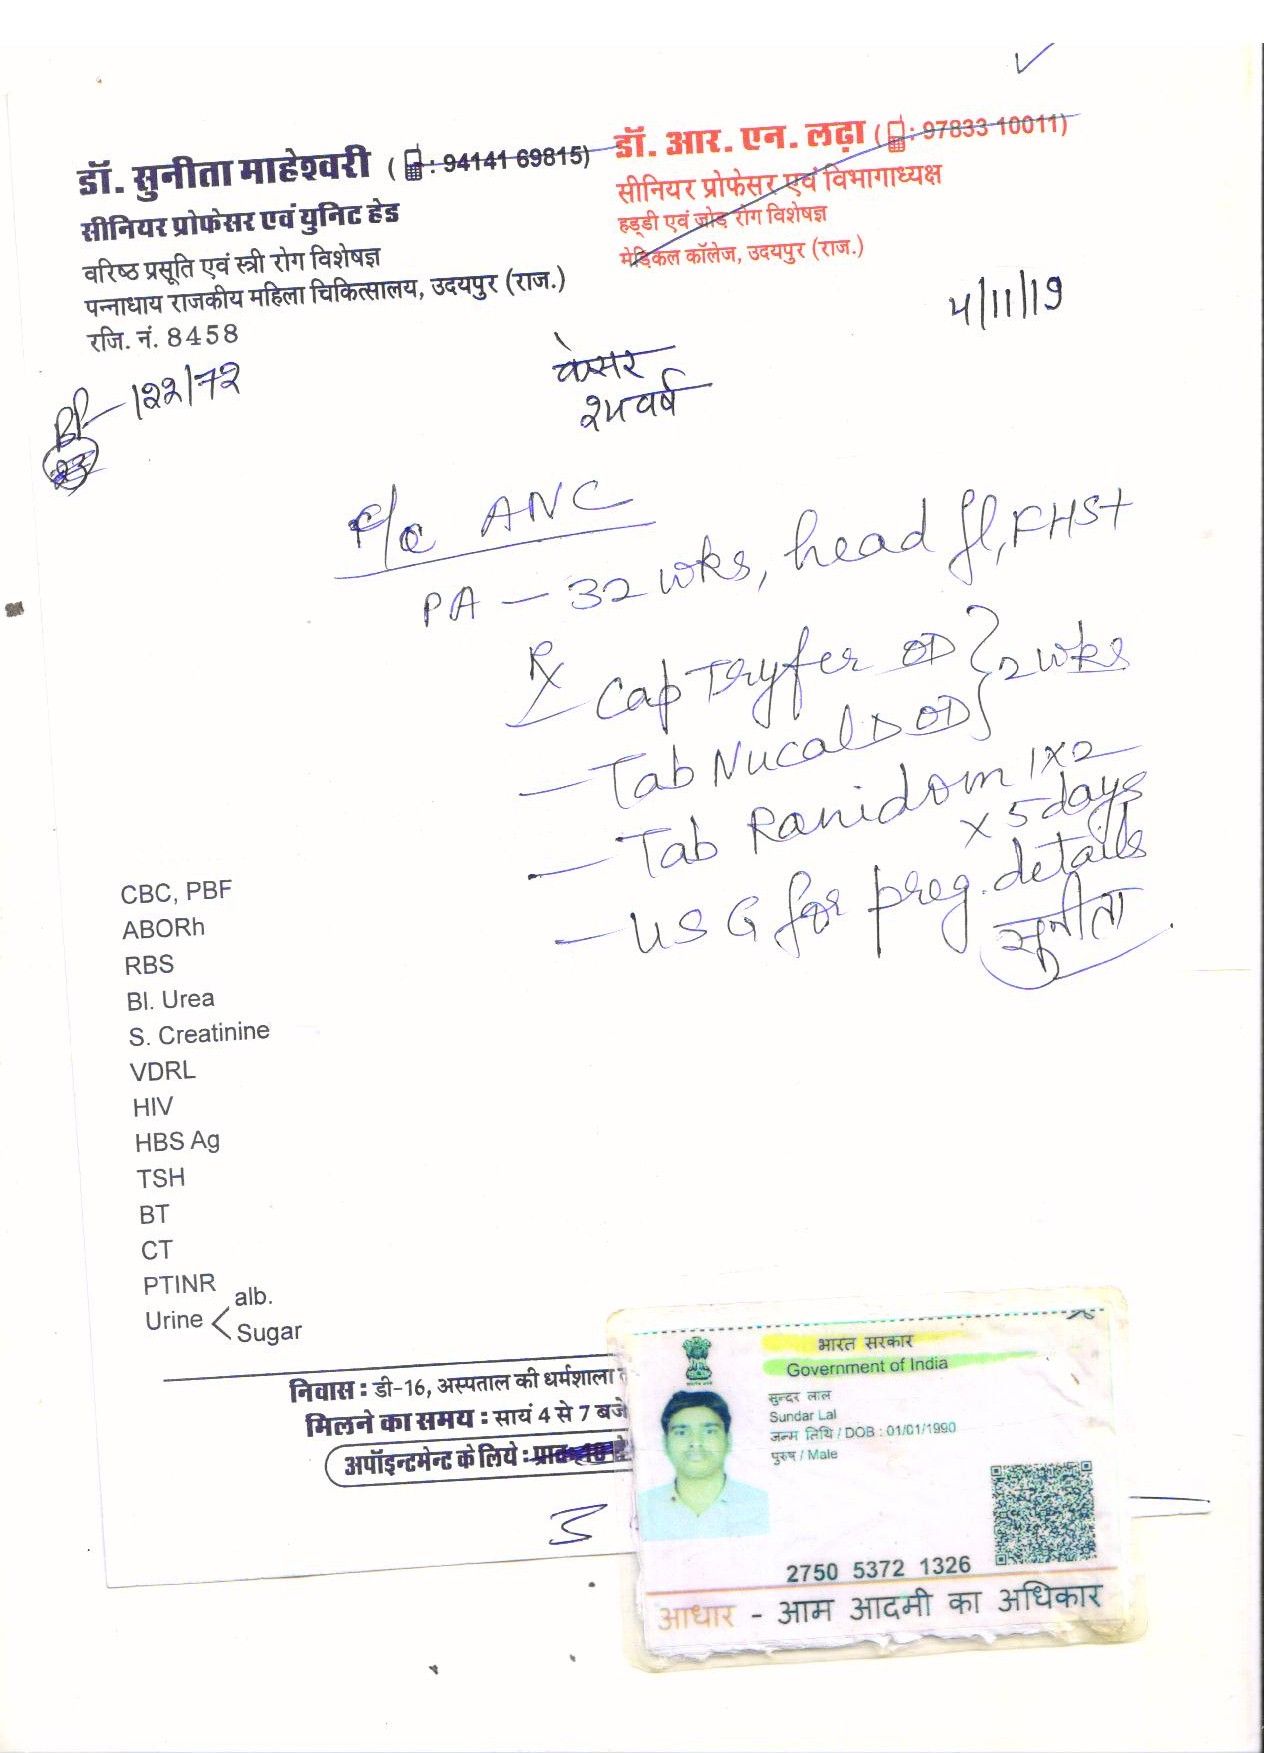 डॉ. सुनीता माहेश्वरी (: 94141 69815)
सीनियर प्रोफेसर एवं युनिट हेड
वरिष्ठ प्रसूति एवं स्त्री रोग विशेषज्ञ
पन्नाधाय राजकीय महिला चिकित्सालय, उदयपुर (राज.)
रजि. नं. 8458
डॉ. आर. एन. लढ़ा (: 97833 10011)
सीनियर प्रोफेसर एवं विभागाध्यक्ष
हड्डी एवं जोड़ रोग विशेषज्ञ
मेडिकल कॉलेज, उदयपुर (राज.)
4/11/19
BP - 122/72
केसर
२५ वर्ष
ANC
PA - 32 wks, head fl, FHS+
Rx Cap Tryfer OD } 2 wks
- Tab Nucal D OD
- Tab Ranidom 1x2
x 5 days
- USG for preg. details
सुनीता
CBC, PBF
ABORh
RBS
Bl. Urea
S. Creatinine
VDRL
HIV
HBS Ag
TSH
BT
CT
PTINR
Urine < alb.
Sugar
निवास : डी-16, अस्पताल की धर्मशाला
मिलने का समय : सायं 4 से 7 बजे
अपॉइन्टमेन्ट के लिये :
भारत सरकार
Government of India
सुन्दर लाल
Sundar Lal
जन्म तिथि / DOB : 01/01/1990
पुरुष / Male
2750 5372 1326
आधार - आम आदमी का अधिकार